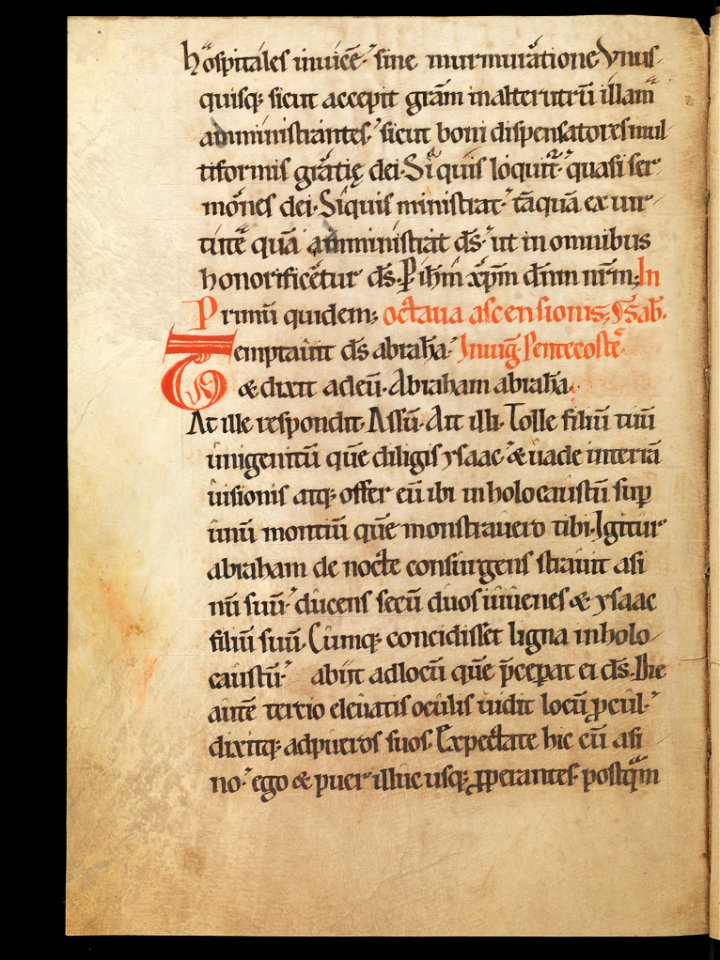 hospitales inuicē. sine murmuratione Vnus
quisq; sicut accepit grām inalterutrū illam
administrantes. sicut boni dispensatores mul
tiformis gratię dei. Si quis loquit̄. quasi ser
mones dei. Si quis ministrat. tāquā ex uir
tutē quā amministrat d̄s. ut in omnibus
honorificētur d̄s. P ih̄m xp̄m dn̄m nr̄m; In
Primū quidem; octaua ascensionis; Sab̄.
Temptauit d̄s abrahā. In uig Pentecostē.
& dixit adeū. Abraham abrahā.
At ille respondit. Assū. Ait illi. Tolle filiū tuū
unigenitū quē diligis ysaac. & uade interrā
uisionis atq; offer eū ibi inholocaustū sup
unū montiū quē monstrauero tibi. Igitur
abraham de nocte consurgens strauit asi
nū suū. ducens secū duos iuuenes & ysaac
filiū suū. Cumq; concidisset ligna inholo
caustū. abiit adlocū quē p̄cepat ei d̄s. Die
autē tercio eleuatis oculis uidit locū pcul.
dixitq; adpueros suos. Expectate hic cū asi
no. ego & puer illuc usq; pperantes. postqm